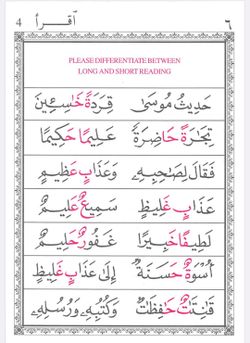 4 اقرأ ٦
PLEASE DIFFERENTIATE BETWEEN
LONG AND SHORT READING
حَدِيثُ مُوسَى قِرَدَةً خَاسِئِينَ
تِجَارَةً حَاضِرَةً عَلِيمًا حَكِيمًا
فَقَالَ لِصَاحِبِهِۦ وَعَذَابٍ عَظِيمٍ
عَذَابٍ غَلِيظٍ سَمِيعٌ عَلِيمٌ
لَطِيفًا خَبِيرًا غَفُورٌ حَلِيمٌ
أُسْوَةٌ حَسَنَةٌ إِلَى عَذَابٍ غَلِيظٍ
قَانِتَاتٌ حَافِظَاتٌ وَكُتُبِهِۦ وَرُسُلِهِۦ